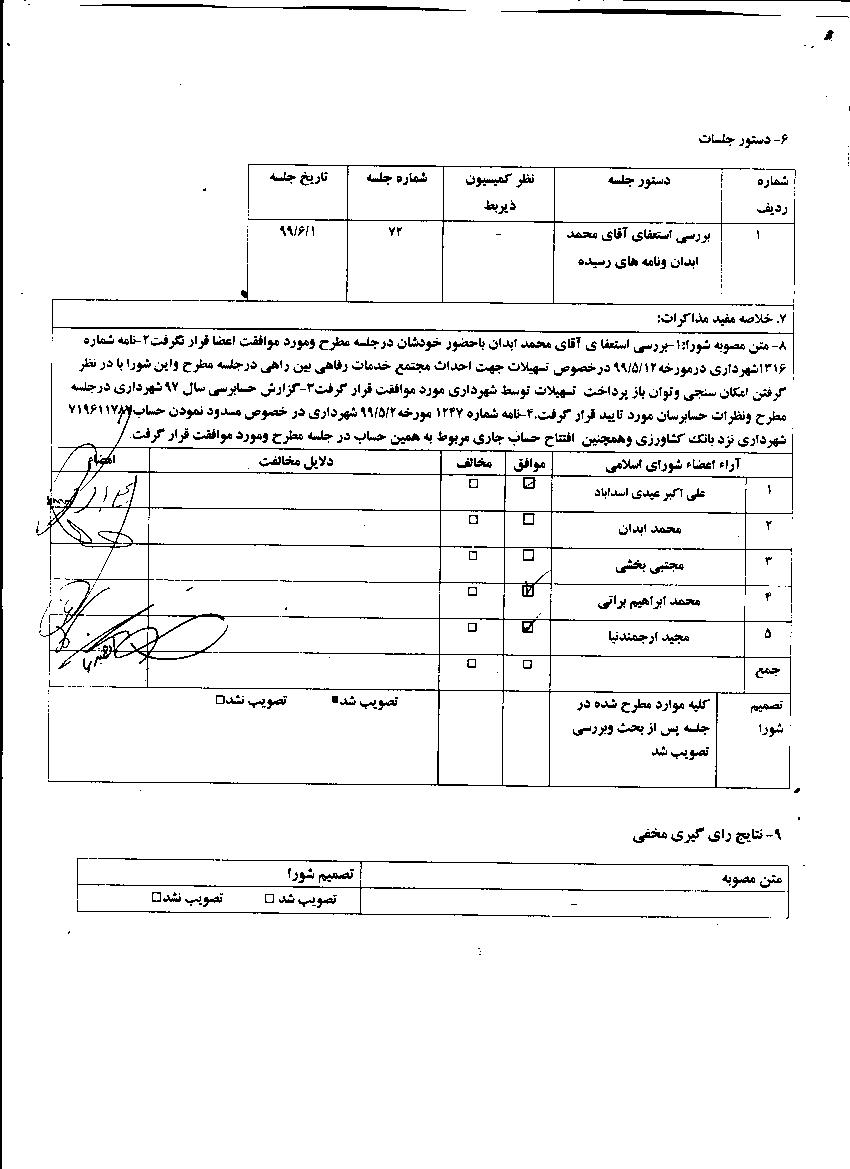 ۶- دستور جلسات
شماره ردیف دستور جلسه نظر کمیسیون ذیربط شماره جلسه تاریخ جلسه
۱ بررسی استعفای آقای محمد ابدان ونامه های رسیده - ۷۲ ۹۹/۶/۱
۷. خلاصه مفید مذاکرات:
۸- متن مصوبه شورا:۱-بررسی استعفا ی آقای محمد ابدان باحضور خودشان درجلسه مطرح ومورد موافقت اعضا قرار نگرفت۲-نامه شماره
۱۳۱۶شهرداری درمورخه ۹۹/۵/۱۲ درخصوص تسهیلات جهت احداث مجتمع خدمات رفاهی بین راهی درجلسه مطرح واین شورا با در نظر
گرفتن امکان سنجی وتوان باز پرداخت تسهیلات توسط شهرداری مورد موافقت قرار گرفت۳-گزارش حسابرسی سال ۹۷ شهرداری درجلسه
مطرح ونظرات حسابرسان مورد تایید قرار گرفت.۴-نامه شماره ۱۲۴۷ مورخه ۹۹/۵/۲ شهرداری در خصوص مسدود نمودن حساب
شهرداری نزد بانک کشاورزی وهمچنین افتتاح حساب جاری مربوط به همین حساب در جلسه مطرح ومورد موافقت قرار گرفت.
آراء اعضاء شورای اسلامی موافق مخالف دلایل مخالفت امضاء
۱ علی اکبر عبدی اسدآباد ☑ ☐
۲ محمد ابدان ☐ ☐
۳ مجتبی بخشی ☐ ☐
۴ محمد ابراهیم براتی ☑ ☐
۵ مجید ارجمندنیا ☑ ☐
جمع ☐ ☐
تصمیم شورا کلیه موارد مطرح شده در جلسه پس از بحث وبررسی تصویب شد تصویب شد■ تصویب نشد☐
۹- نتایج رای گیری مخفی
متن مصوبه تصمیم شورا
- تصویب شد ☐ تصویب نشد☐